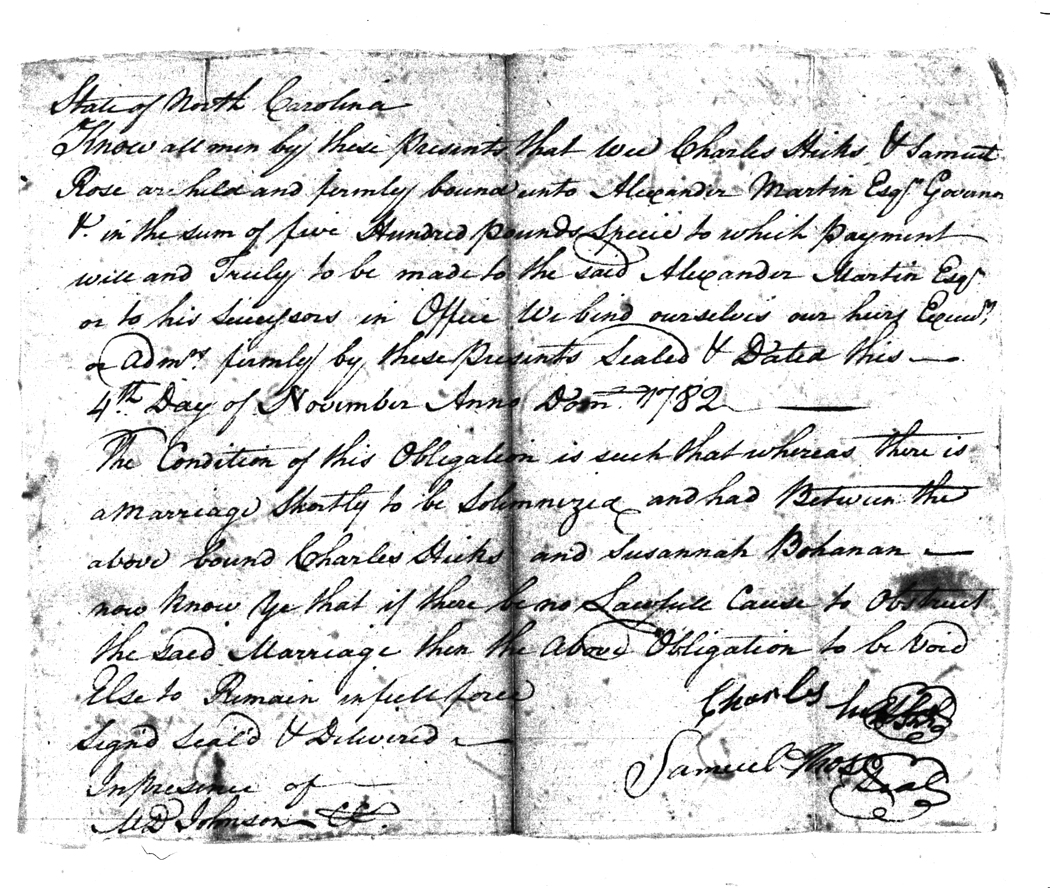 State of North Carolina
Know all men by these Presents that Wee Charles Hicks & Samuel
Rose are held and fermley bound unto Alexander Martin Esqr. Govann
&. in the sum of five Hundred pounds Specie to which payment
will and Truly to be made to the said Alexander Martin Esqr
or to his sucessors in Office We bind ourselves our heirs Execurs
or Admrs. firmly by these Presents Sealed & Dated this
4th. Day of November Anno Dom. 1782
The Condition of this Obligation is such that whereas there is
a Marriage Shortly to be Solemnized and had Between the
above bound Charles Hicks and Susannah Bohanan
now Know Ye that if there be no Lawfull Cause to Obstruct
the Saed Marriage then the above Obligation to be Void
Else to Remain in full force
Charles
Sign'd Seal'd & Delivered
Samuel Rose Seal
In presence of
MD Johnson